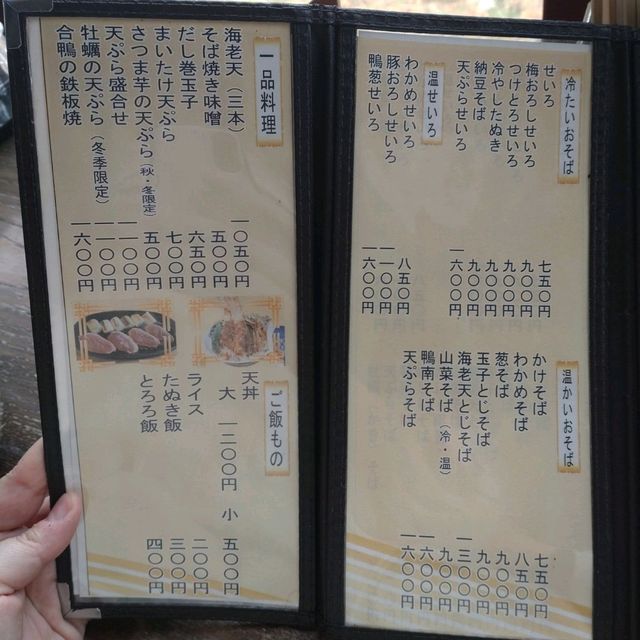 冷たいおそば
せいろ 七五〇円
梅おろしせいろ 九〇〇円
つけとろせいろ 九〇〇円
冷やしたぬき 九〇〇円
納豆そば 九〇〇円
天ぷらせいろ 一六〇〇円
温せいろ
わかめせいろ 八五〇円
豚おろしせいろ 一一〇〇円
鴨葱せいろ 一六〇〇円
温かいおそば
かけそば 七五〇円
わかめそば 八五〇円
葱そば 九〇〇円
玉子とじそば 九〇〇円
海老天とじそば 一三〇〇円
山菜そば（冷・温） 九〇〇円
鴨南そば 一六〇〇円
天ぷらそば 一六〇〇円
一品料理
海老天（三本） 一〇五〇円
そば焼き味噌 五〇〇円
だし巻玉子 六五〇円
まいたけ天ぷら 七〇〇円
さつま芋の天ぷら（秋・冬限定） 五〇〇円
天ぷら盛合せ 一一〇〇円
牡蠣の天ぷら（冬季限定） 一一〇〇円
合鴨の鉄板焼 一六〇〇円
ご飯もの
天丼
大 一二〇〇円 小 五〇〇円
ライス 二〇〇円
たぬき飯 三〇〇円
とろろ飯 四〇〇円